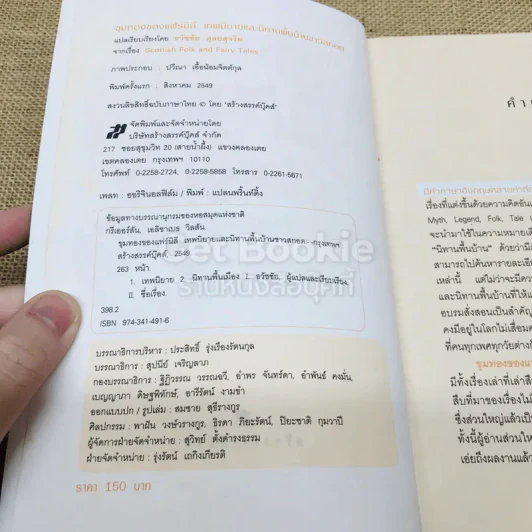 ขุมทองของแฟร์มิลี เทพนิยายและนิทานพื้นบ้านชาวสกอต
แปลเรียบเรียงโดย ธวัชชัย ดุลยสุจริต
จากเรื่อง Scottish Folk and Fairy Tales
ภาพประกอบ : ปวีณา เชื้อน้อมจิตต์กุล
พิมพ์ครั้งแรก : สิงหาคม 2549
สงวนลิขสิทธิ์ฉบับภาษาไทย © โดย "สร้างสรรค์บุ๊คส์"
จัดพิมพ์และจัดจำหน่ายโดย
บริษัทสร้างสรรค์บุ๊คส์ จำกัด
217 ซอยสุขุมวิท 20 (สายน้ำผึ้ง) แขวงคลองเตย
เขตคลองเตย กรุงเทพฯ 10110
โทรศัพท์ 0-2258-2724, 0-2258-5858 โทรสาร 0-2261-5671
เพลท : ออริจินอลฟิล์ม / พิมพ์ : แปลนพริ้นท์ติ้ง
ข้อมูลทางบรรณานุกรมของหอสมุดแห่งชาติ
กรีเออร์สัน, เอลิซาเบธ วิลสัน.
ขุมทองของแฟร์มิลี เทพนิยายและนิทานพื้นบ้านชาวสกอต.--กรุงเทพฯ
สร้างสรรค์บุ๊คส์, 2549.
263 หน้า.
1. เทพนิยาย 2. นิทานพื้นเมือง I. ธวัชชัย, ผู้แปลและเรียบเรียง.
II. ชื่อเรื่อง.
398.2
ISBN 974-341-491-6
บรรณาธิการบริหาร : ประสิทธิ์ รุ่งเรืองรัตนกุล
บรรณาธิการ : สุปนีย์ เจริญลาภ
กองบรรณาธิการ : ฐิภิวรรณ วรรณอวี, อำพร จันทร์ดา, อำพันธ์ คงมั่น,
เบญญาภา ดิษฐพิทักษ์, อารีรัตน์ งามขำ
ออกแบบปก / รูปเล่ม : สมชาย สุธีรางกูร
ศิลปกรรม : พาฝัน วงษ์วรางกูร, ธิรดา ภิยะรัตน์, ปิยะชาติ กุมวาปี
ผู้จัดการฝ่ายจัดจำหน่าย : สุวิทย์ ตั้งดำรงธรรม
ฝ่ายจัดจำหน่าย : รุ่งรัตน์ เถกิงเกียรติ
ราคา 150 บาท
Get Bookie
ร้านหนังสือบุคกี้
คำ
มีคำภาษาอังกฤษหลายคำที่
เรื่องที่แต่งขึ้นด้วยความคิดอัน
Myth, Legend, Folk, Tale
จะนำมาใช้ในความหมายเดีย
"นิทานพื้นบ้าน" ด้วยว่ามี
สามารถไปค้นหารายละเอีย
เหล่านี้ แต่ไม่ว่าจะมีควา
และนิทานพื้นบ้านที่ให้แ
อบรมสั่งสอนเป็นสำคัญ
คงมีอยู่ในโลกไม่เสื่อม
ที่คนทุกเพศทุกวัยต่าง
ขุมทองของแ
มีทั้งเรื่องเล่าที่เล่าสื
สืบที่มาของเรื่องไม่
ซึ่งส่วนใหญ่แล้วเป็
ทั้งนี้ผู้อ่านส่วนให
เอ่ยถึงผลงานแล้ว